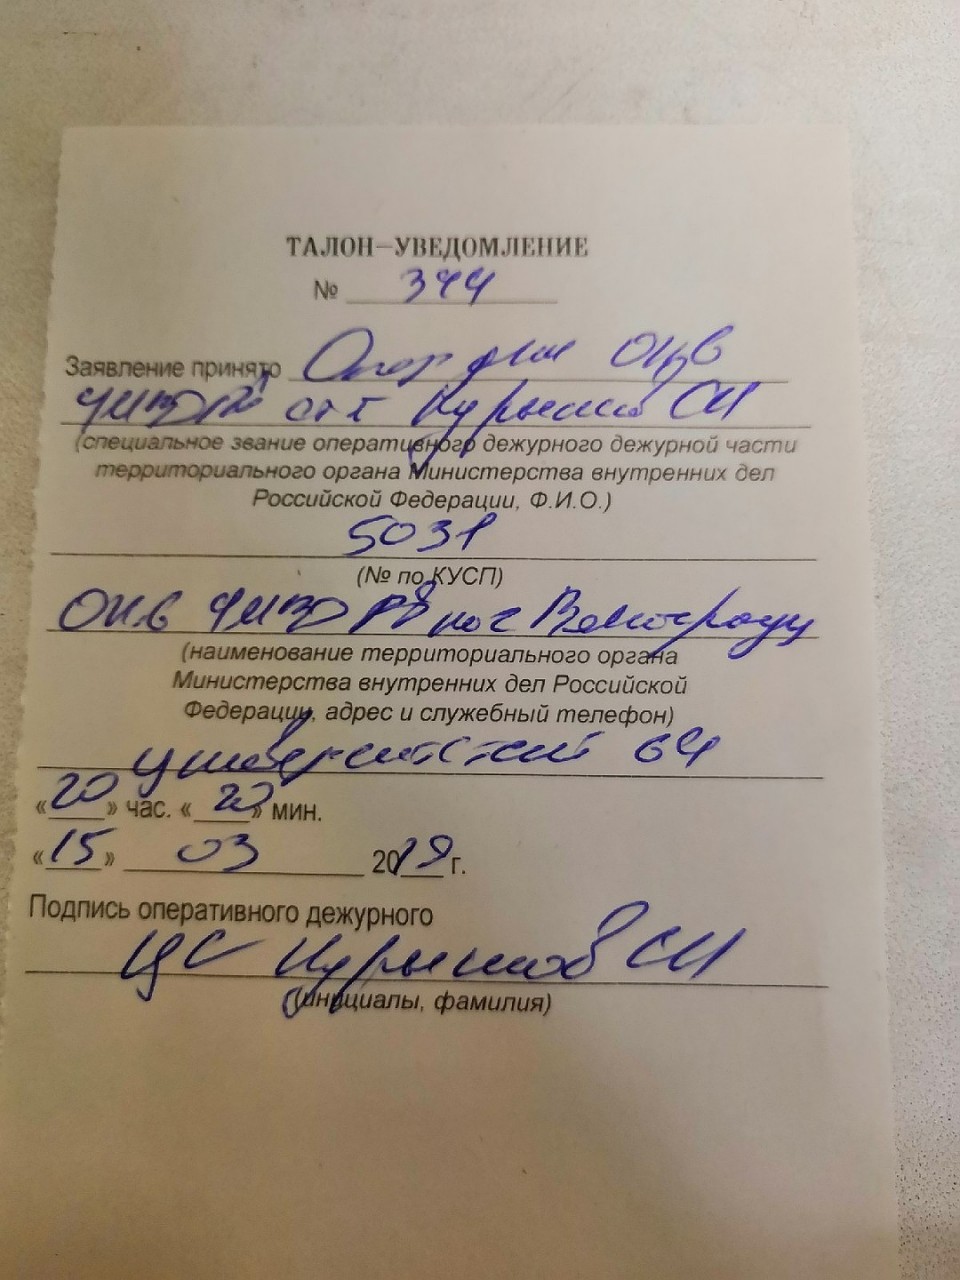 ТАЛОН—УВЕДОМЛЕНИЕ
№ 344
Заявление принято
СИ
(специальное звание оперативного дежурного дежурной части
территориального органа Министерства внутренних дел
Российской Федерации, Ф.И.О.)
5031
(№ по КУСП)
по г Волгограду
(наименование территориального органа
Министерства внутренних дел Российской
Федерации, адрес и служебный телефон)
Университетский 64
«20» час. «20» мин.
«15» 03 2019 г.
Подпись оперативного дежурного
СИ
(инициалы, фамилия)